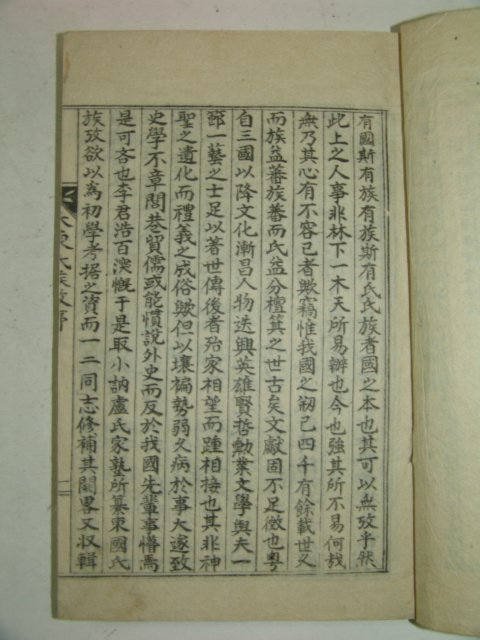 有國斯有族有族斯有氏氏族者國之本也其可以無攷乎然
此上之人事非林下一木天所易辦也今也強其所不易何哉
無乃其心有不容已者歟竊惟我國之刱已四千有餘載世久
而族益蕃族蕃而氏益分檀箕之世古矣文獻固不足徵也粤
自三國以降文化漸昌人物迭興英雄賢哲勳業文學與夫一
節一藝之士足以著世傳後者殆家相望而踵相接也其非神
聖之遺化而禮義之成俗歟但以壤褊勢弱久病於事大遂致
史學不章閭巷貿儒或能慣說外史而反於我國先輩事懵焉
是可吝也李君浩百深慨于是取小訥盧氏家塾所纂東國氏
族攷欲以爲初學考据之資而一二同志修補其闕畧又収輯
大東氏族攷序